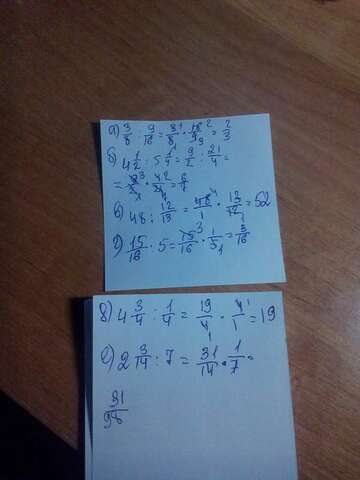 а) 3/8 : 9/16 = 3/8 · 16/9 = 2/3
б) 4 1/2 : 5 1/4 = 9/2 : 21/4 =
= 9/2 · 4/21 = 6/7
в) 48 : 12/13 = 48/1 · 13/12 = 52
г) 15/16 · 5 = 15/16 · 1/5 = 3/16
д) 4 3/4 : 1/4 = 19/4 · 4/1 = 19
е) 2 3/14 : 7 = 31/14 · 1/7 =
31/98